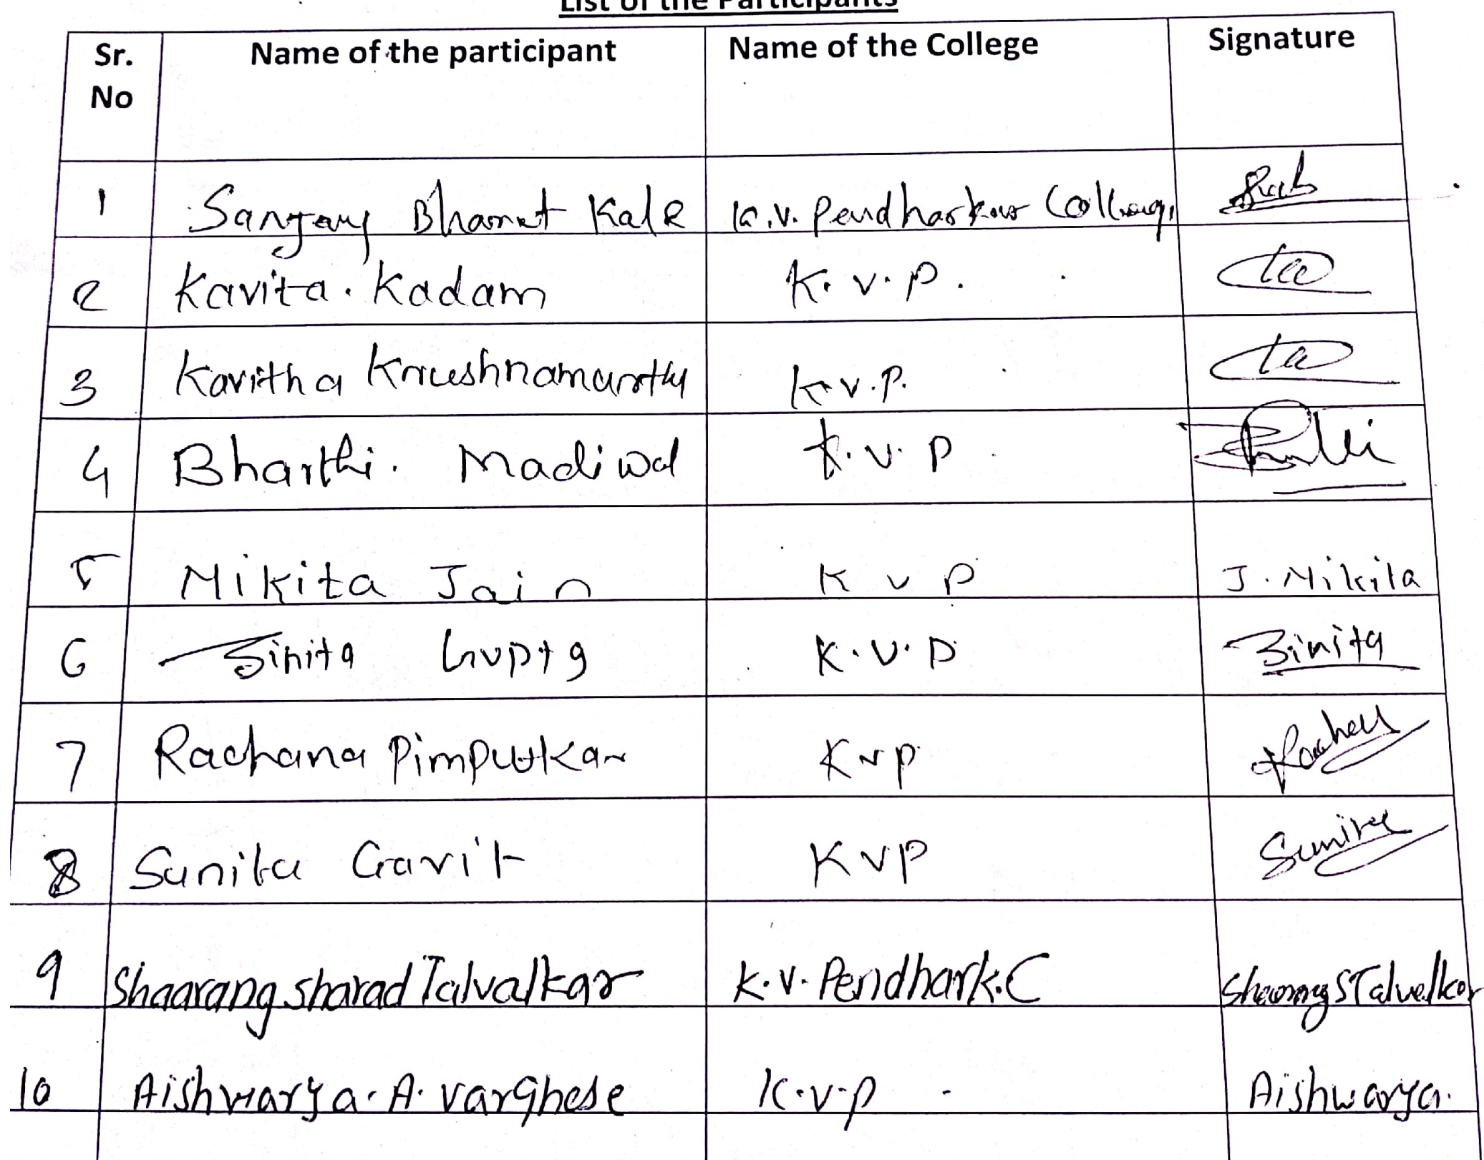 List of the Participants
Sr. No Name of the participant Name of the College Signature
1 Sanjay Bharat Kale K.V. Pendharkar College
2 Kavita. Kadam K.V.P.
3 Kavitha Krushnamurthy K.V.P.
4 Bharthi. Madiwal K.V.P
5 Nikita Jain K V P J. Nikita
6 Zinita Gupta K.V.P Zinita
7 Rachana Pimputkar KVP
8 Sunita Gavit KVP Sunita
9 Shaarang sharad Talvalkar K.V. Pendhark.C Shaarang S Talvalkar
10 Aishwarya. A. Varghese K.V.P Aishwarya.